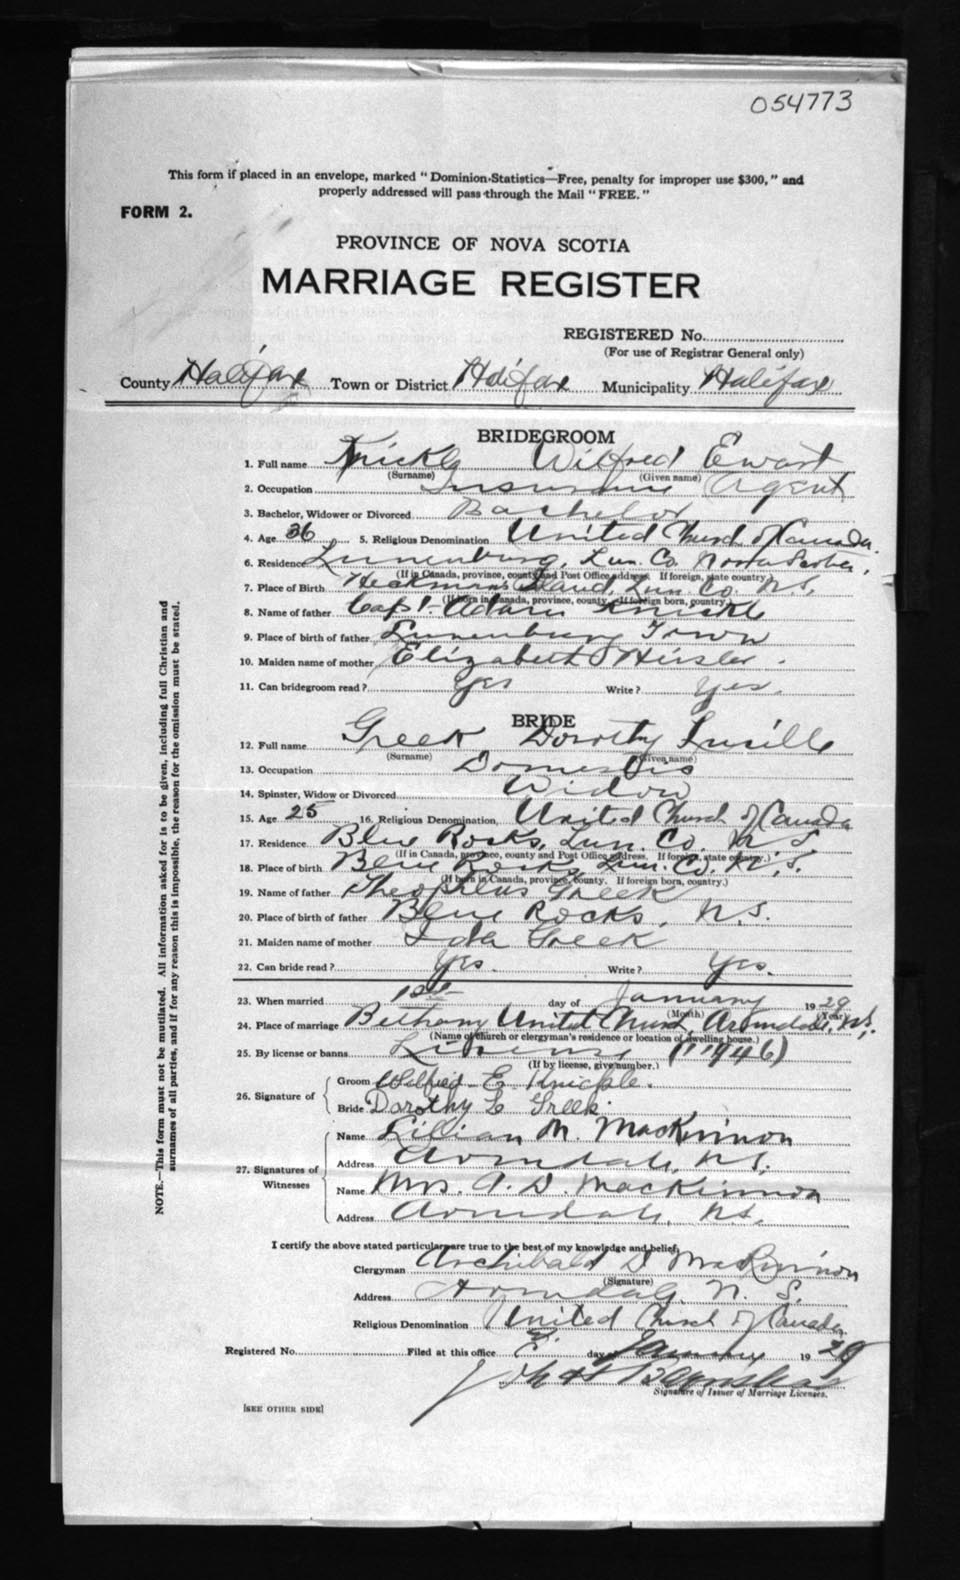 054773
This form if placed in an envelope, marked "Dominion-Statistics—Free, penalty for improper use $300," and
properly addressed will pass through the Mail "FREE."
FORM 2.
PROVINCE OF NOVA SCOTIA
MARRIAGE REGISTER
REGISTERED No.
(For use of Registrar General only)
County Halifax Town or District Halifax Municipality Halifax
BRIDEGROOM
1. Full name Knickle Wilfred Ewart
(Surname) (Given name)
2. Occupation Insurance Agent
3. Bachelor, Widower or Divorced Bachelor
4. Age 36 5. Religious Denomination United Church of Canada.
6. Residence Lunenburg, Lun. Co. Nova Scotia,
(If in Canada, province, county and Post Office address. If foreign, state country.)
7. Place of Birth Heckmans Island, Lun. Co. N.S.
(If born in Canada, province, county. If foreign born, country.)
8. Name of father Capt. Adam Knickle
9. Place of birth of father Lunenburg Town
10. Maiden name of mother Elizabeth
11. Can bridegroom read? Yes Write? Yes.
BRIDE
12. Full name Greek Dorothy Lucille
(Surname) (Given name)
13. Occupation Domestic
14. Spinster, Widow or Divorced Widow
15. Age 25 16. Religious Denomination, United Church of Canada
17. Residence Blue Rocks, Lun. Co. N.S
(If in Canada, province, county and Post Office address. If foreign, state country.)
18. Place of birth Blue Rocks, Lun. Co. N.S.
(If born in Canada, province, county. If foreign born, country.)
19. Name of father Theophilus Greek
20. Place of birth of father Blue Rocks, N.S.
21. Maiden name of mother Greek
22. Can bride read? Yes. Write? Yes.
23. When married 1st day of January 1929
(Month) (Year)
24. Place of marriage Bethany United Church, Armdale, N.S.
(Name of church or clergyman's residence or location of dwelling house.)
25. By license or banns License (11946)
(If by license, give number.)
26. Signature of
Groom Wilfred E Knickle.
Bride Dorothy L Greek.
27. Signatures of Witnesses
Name Lillian M. MacKinnon
Address Armdale, N.S.
Name Mrs. A. D. MacKinnon
Address Armdale, N.S.
I certify the above stated particulars are true to the best of my knowledge and belief.
Clergyman Archibald D MacKinnon
(Signature)
Address Armdale, N. S.
Religious Denomination United Church of Canada
Registered No. Filed at this office day of January 1929
Signature of Issuer of Marriage Licenses.
[SEE OTHER SIDE]
NOTE.—This form must not be mutilated. All information asked for is to be given, including full Christian and
surnames of all parties, and if for any reason this is impossible, the reason for the omission must be stated.